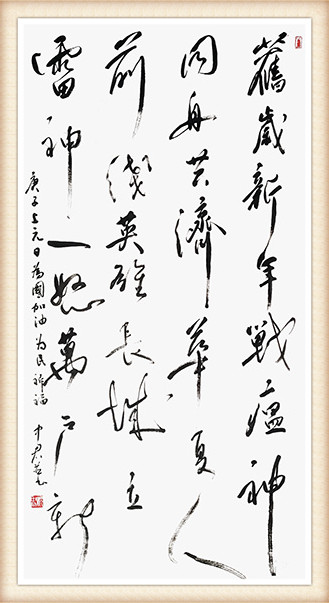 舊歲新年戰瘟神
同舟共濟華夏人
前綫英雄長城立
雷神一怒萬戶新
庚子上元日為國加油为民祈福